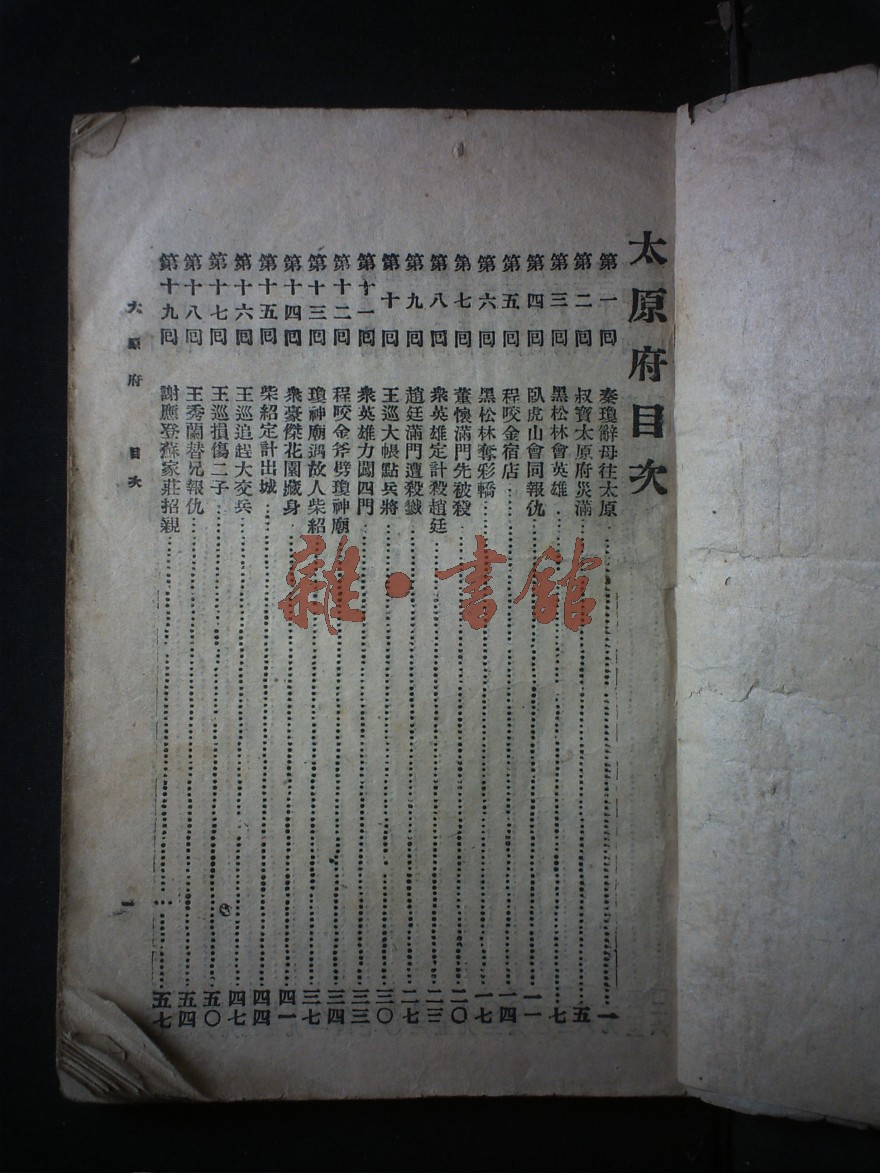 太原府目次
第一回 秦瓊辭母往太原 一
第二回 叔寶太原府災滿 五
第三回 黑松林會英雄 七
第四回 臥虎山會同報仇 一一
第五回 程咬金宿店 一四
第六回 黑松林奪彩轎 一七
第七回 董懷滿門先被殺 二〇
第八回 衆英雄定計殺趙廷 二三
第九回 趙廷滿門遭殺戮 二七
第十回 王巡大帳點兵將 三〇
第十一回 衆英雄力闖四門 三三
第十二回 程咬金斧劈瓊神廟 三四
第十三回 瓊神廟遇故人柴紹 三七
第十四回 衆豪傑花園藏身 四一
第十五回 柴紹定計出城 四四
第十六回 王巡追趕大交兵 四七
第十七回 王巡損傷二子 五〇
第十八回 王秀蘭替兄報仇 五四
第十九回 謝應登蘇家莊招親 五七
太原府 目次 一
雜·書館